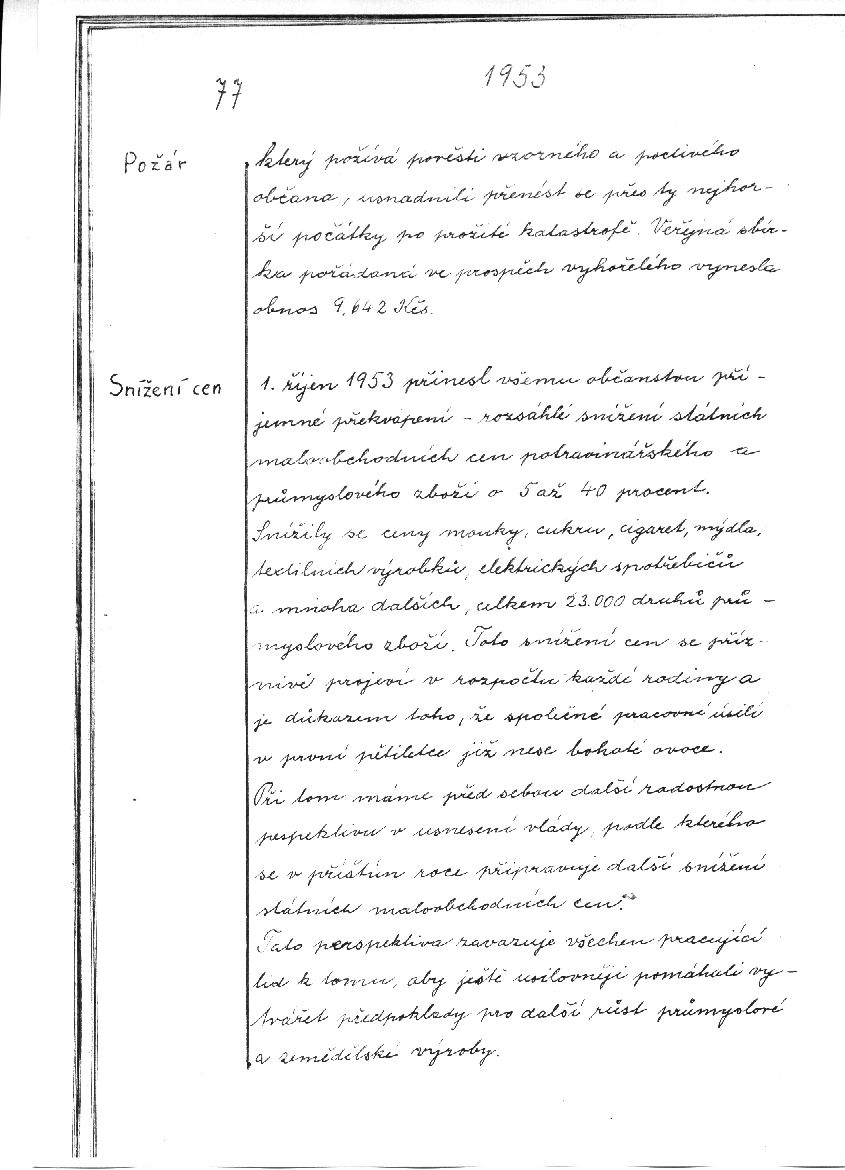 1953
77
Požár
který požívá pověsti vzorného a poctivého
občana, usnadnili přenést se přes ty nejhor-
ší počátky po prožité katastrofě. Veřejná sbír-
ka pořádaná ve prospěch vyhořelého vynesla
obnos 9.642 Kčs.
Snížení cen
1. říjen 1953 přinesl všemu občanstvu pří-
jemné překvapení - rozsáhlé snížení státních
maloobchodních cen potravinářského a
průmyslového zboží o 5 až 40 procent.
Snížily se ceny mouky, cukru, cigaret, mýdla,
textilních výrobků, elektrických spotřebičů
a mnoha dalších, celkem 23.000 druhů prů-
myslového zboží. Toto snížení cen se příz-
nivě projeví v rozpočtu každé rodiny a
je důkazem toho, že společné pracovní úsilí
v první pětiletce již nese bohaté ovoce.
Při tom máme před sebou další radostnou
pespektivu v usnesení vlády, podle kterého
se v příštím roce připravuje další snížení
státních maloobchodních cen.
Tato perspektiva zavazuje všechen pracující
lid k tomu, aby ještě usilovněji pomáhali vy-
tvářet předpoklady pro další růst průmyslové
a zemědělské výroby.